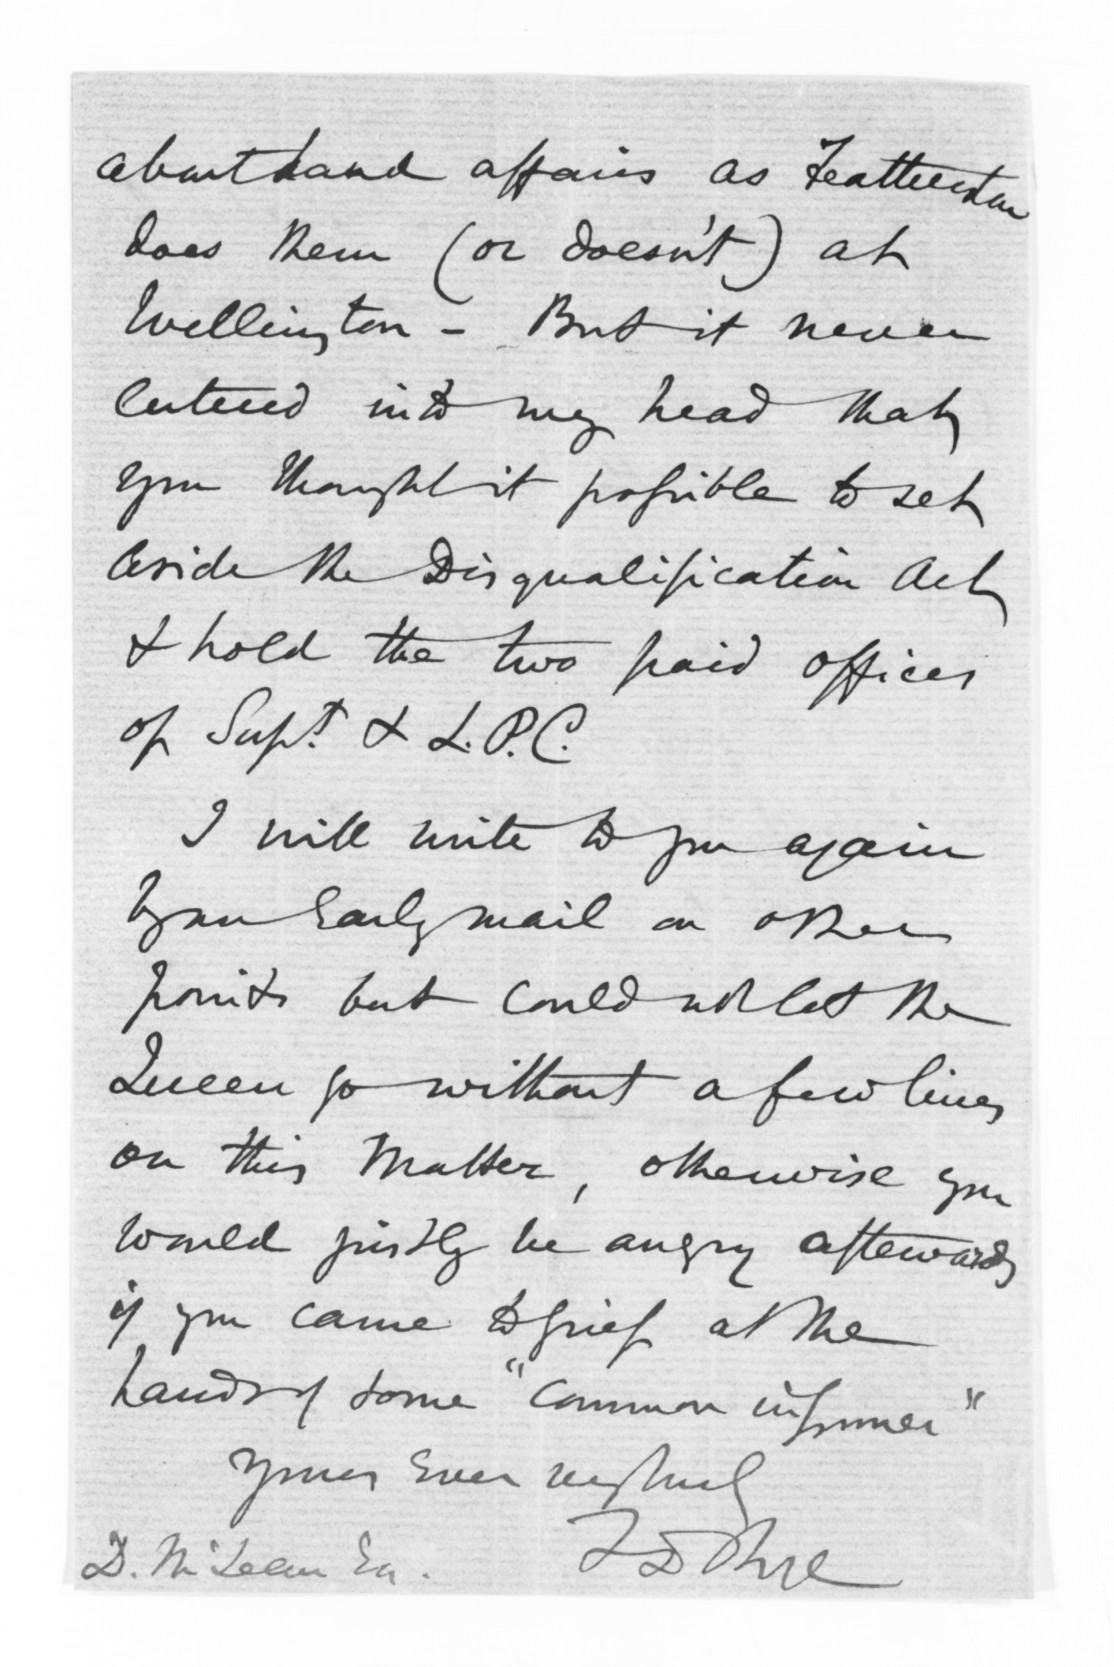 about land affairs as Featherston
does them (or doesn't) at
Wellington - But it never
entered into my head that
you thought it possible to set
aside the Disqualification Act
& hold the two paid offices
of Supt. & L.P.C.
I will write to you again
by an early mail on other
points but could not let the
Queen go without a few lines
on this matter, otherwise you
would justly be angry afterwards
if you came to grief at the
hands of some "common informer"
Yours ever very truly
D. McLean Esq.
F D